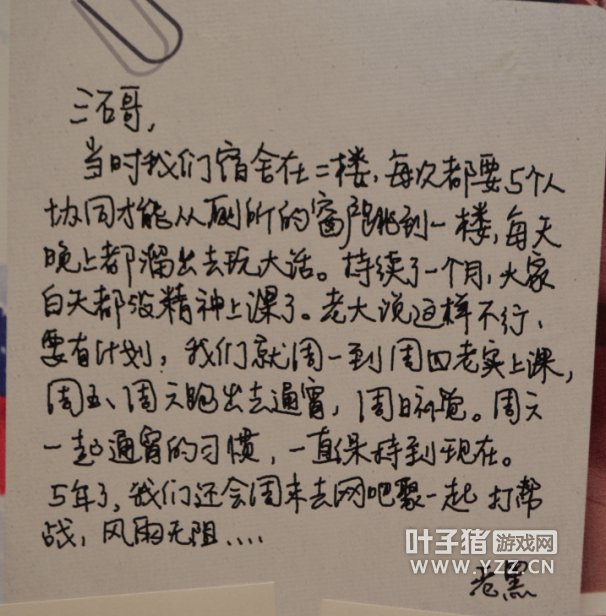 三石哥,
当时我们宿舍在二楼,每次都要5个人
协同才能从厕所的窗户跳到一楼,每天
晚上都溜出去玩大话。持续了一个月,大家
白天都没精神上课了。老大说这样不行,
要有计划,我们就周一到周四老实上课,
周五、周六跑出去通宵,周日补觉。周六
一起通宵的习惯,一直保持到现在。
5年了,我们还会周末去网吧聚一起打帮
战,风雨无阻....
老黑
叶子猪游戏网
WWW.YZZ.CN